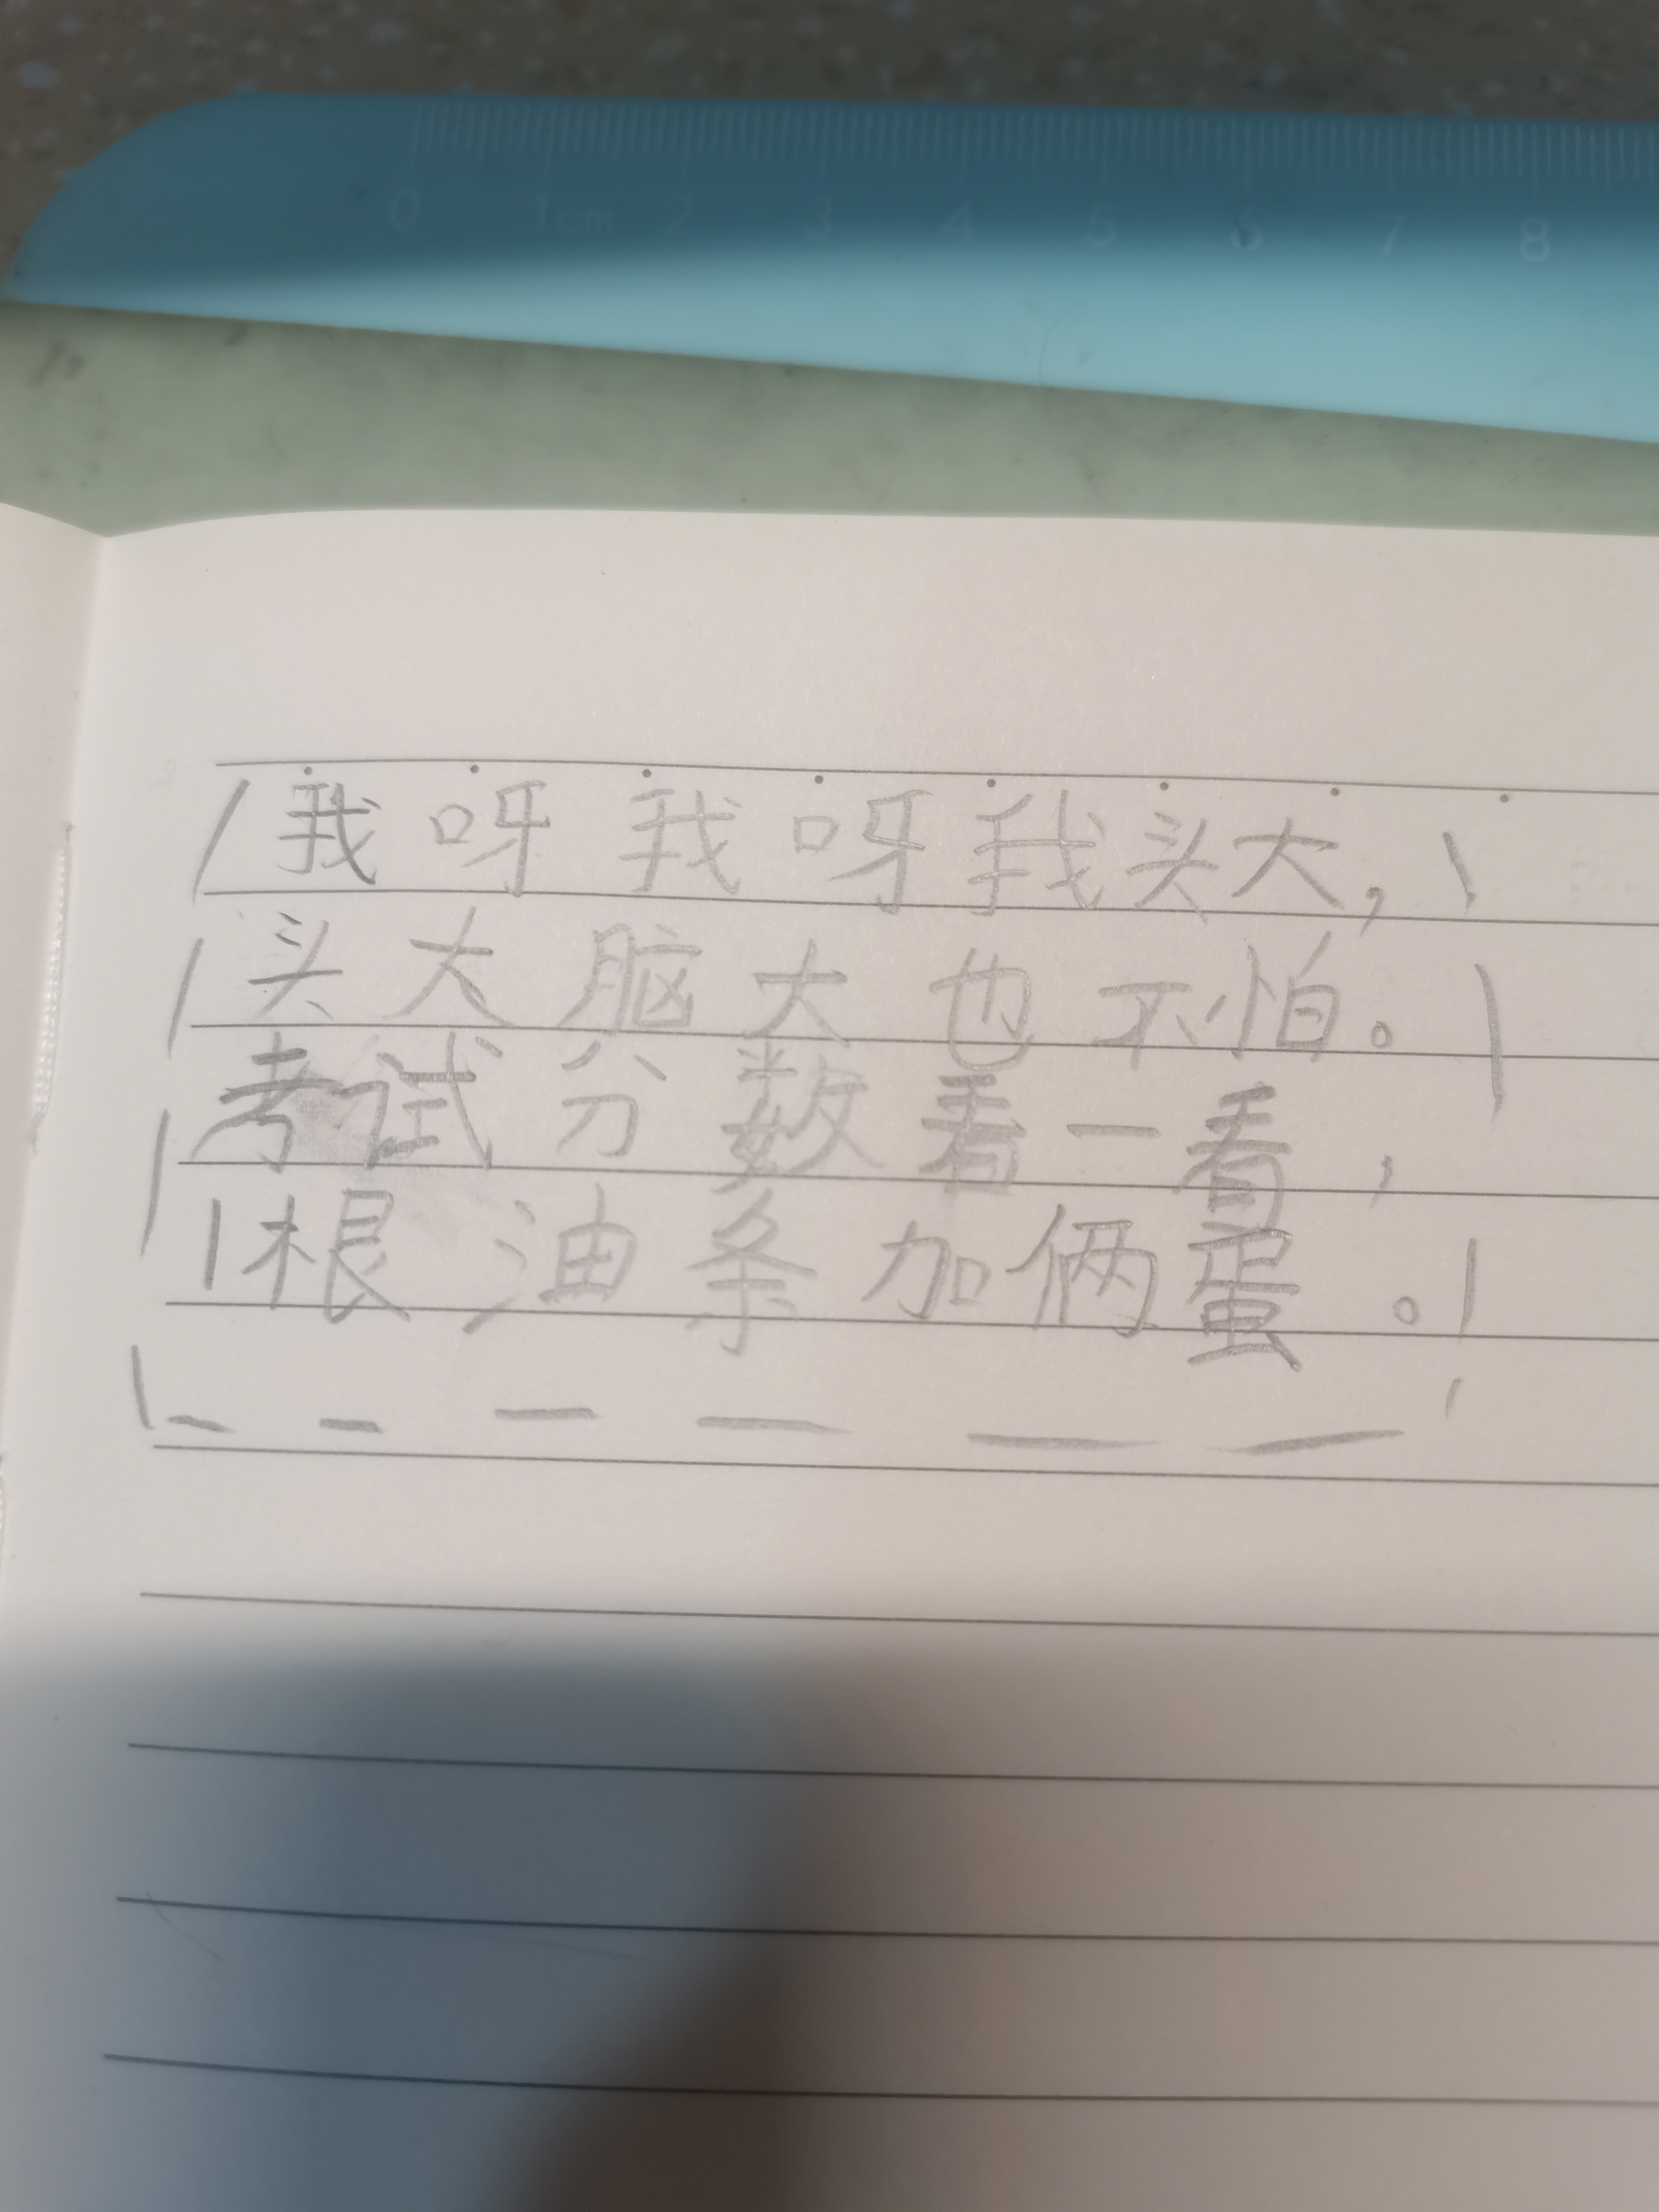 0 1cm 2 3 4 5 6 7 8
我呀我呀我头大，
头大脑大也不怕。
考试分数看一看，
1根油条加俩蛋。